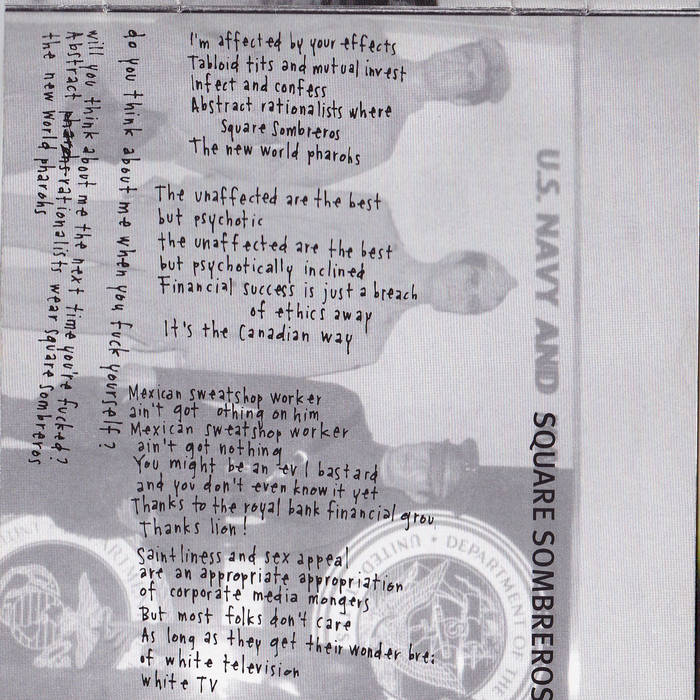 I'm affected by your effects
Tabloid tits and mutual invest
Infect and confess
Abstract rationalists where
Square Sombreros
The new world pharohs
The unaffected are the best
but psychotic
the unaffected are the best
but psychotically inclined
Financial success is just a breach
of ethics away
It's the Canadian way
Mexican sweatshop worker
ain't got othing on him
Mexican sweatshop worker
ain't got nothing
You might be an ev l bastard
and you don't even know it yet
Thanks to the royal bank financial grou
Thanks lion!
Saintliness and sex appeal
are an appropriate appropriation
of corporate media mongers
But most folks don't care
As long as they get their wonder bre
of white television
white TV
do you think about me when you fuck yourself?
will you think about me the next time you're fucked?
Abstract pharohs rationalists wear square sombreros
the new world pharohs
U.S. NAVY AND
SQUARE SOMBREROS
UNITED
DEPARTMENT
OF THE